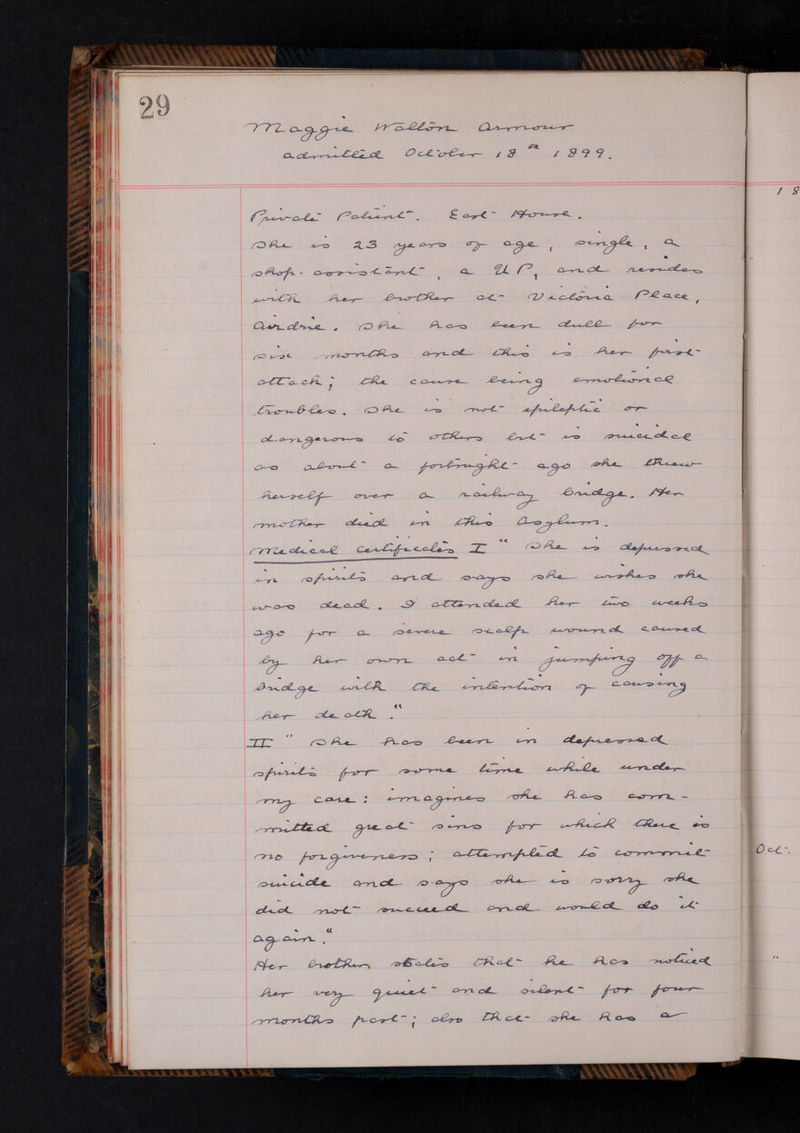 29
Maggie Walton Armour
admitted October 18th 1899.
Private Patient. East House.
She is 23 years of age, single, a
shop-assistant, a U P, and resides
with her brother at Victoria Place,
Airdrie. She has been dull for
six months and this is her first
attack; the cause being emotional
troubles. She is not epileptic or
dangerous to others but is suicidal
as about a fortnight ago she threw
herself over a railway bridge. Her
mother died in this Asylum.
Medical Certificates I "She is depressed
in spirits and says she wishes she
was dead. I attended her two weeks
ago for a severe scalp wound caused
by her own act in jumping off a
bridge with the intention of causing
her death."
II "She has been in depressed
spirits for some time while under
my care: imagines she has com-
mitted great sins for which there is
no forgiveness; attempted to commit
suicide and says she is sorry she
did not succeed and would do it
again."
Her brother states that he has noticed
her very quiet and silent for four
months past; also that she has a
18
Oct.
"